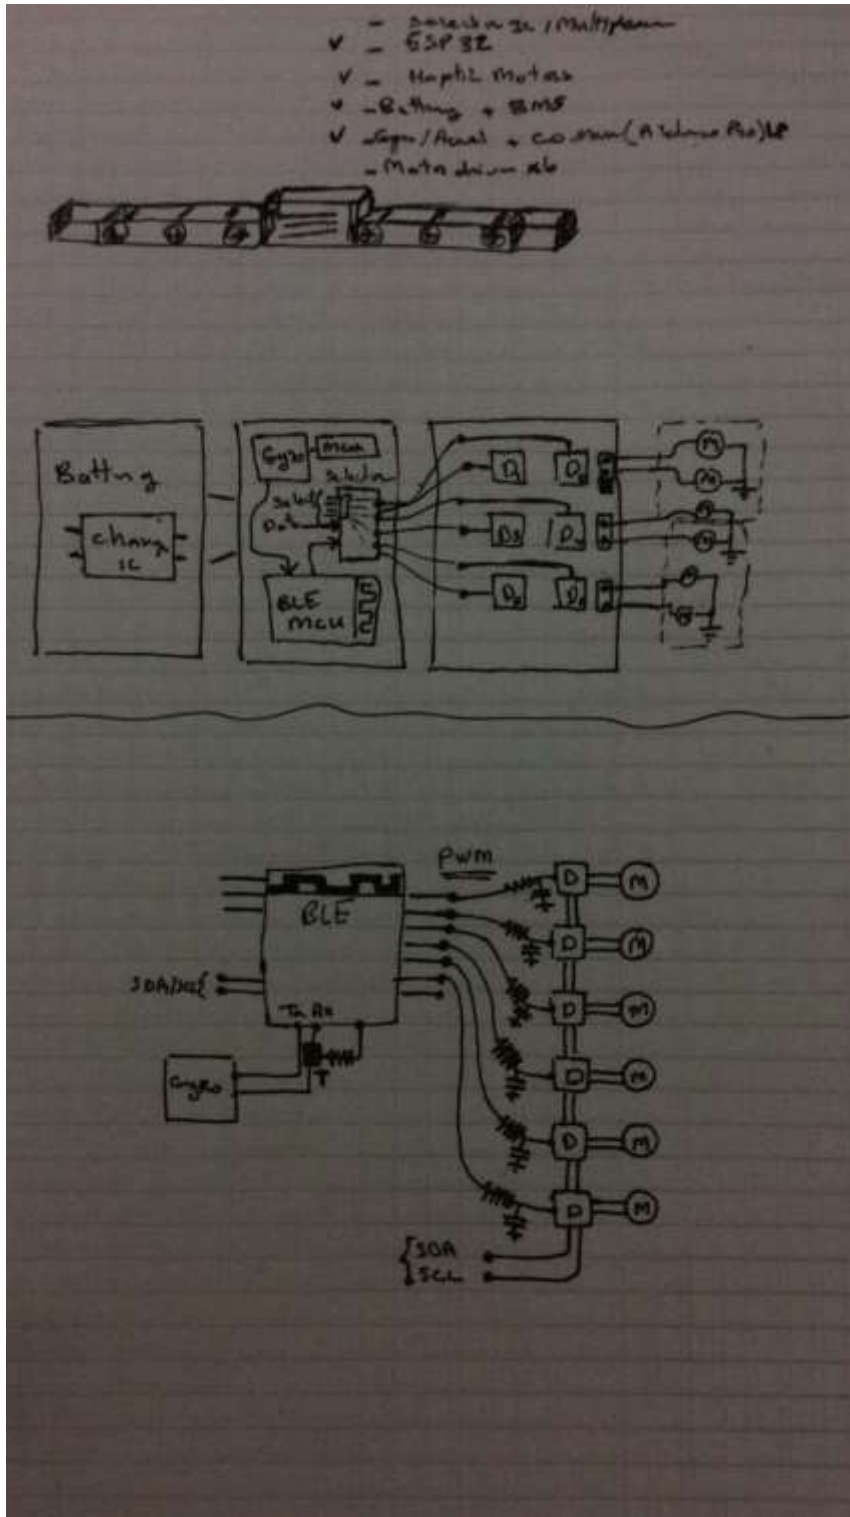 - Selection IC / Multiplexer
✓ - ESP 32
✓ - Haptic Motors
✓ - Battery + BMS
✓ - Gyro/Accel +
- Motor driver x6
Battry
Charg
IC
Gyro
MCU
Selector
Select
Data
BLE
MCU
D1
D3
M
M
M
M
PWM
BLE
SDA/SCL
Tx Rx
T
Gyro
D M
D M
D M
D M
D M
D M
SDA
SCL